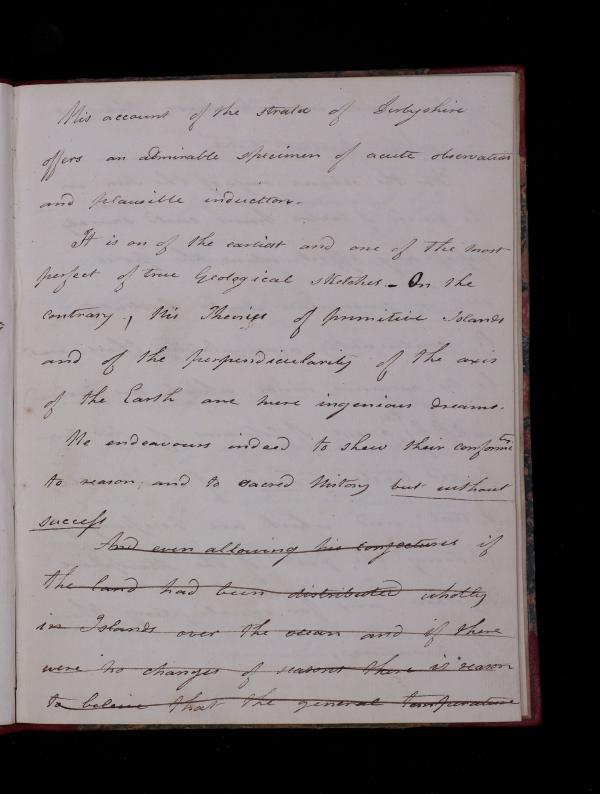 His account of the strata of Derbyshire
offers an admirable specimen of acute observation
and plausible induction.
It is on of the earliest and one of the most
perfect of true Geological sketches - On the
contrary, his Theories of primitive Islands
and of the perpendicularity of the axis
of the Earth are mere ingenious dreams.
He endeavours indeed to shew their
to reason, and to sacred History but without
success
And even allowing his conjectures if
the land had been distributed wholly
in Islands over the ocean and if there
were no changes of seasons there is reason
to believe that the general temperature